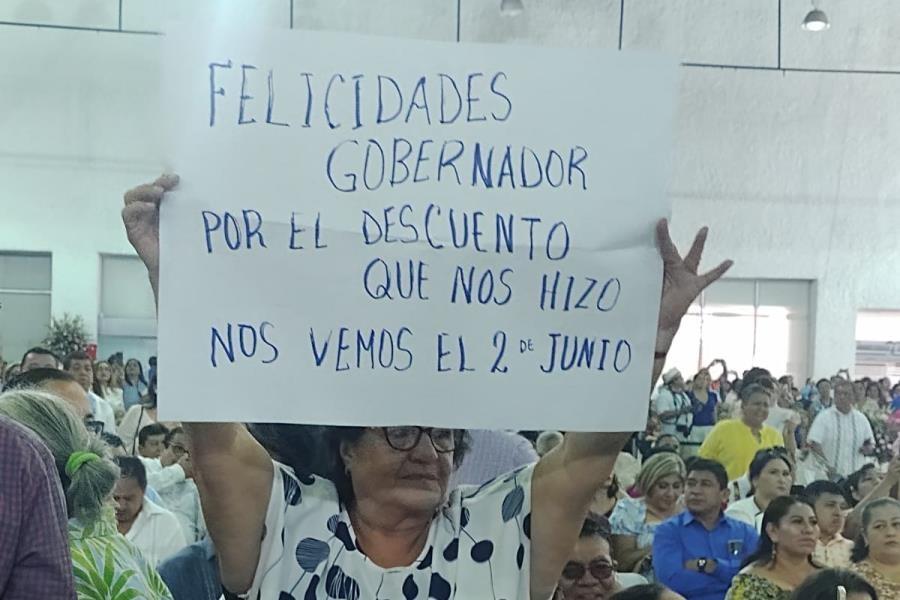 FELICIDADES
GOBERNADOR
POR EL DESCUENTO
QUE NOS HIZO
NOS VEMOS EL 2 DE JUNIO